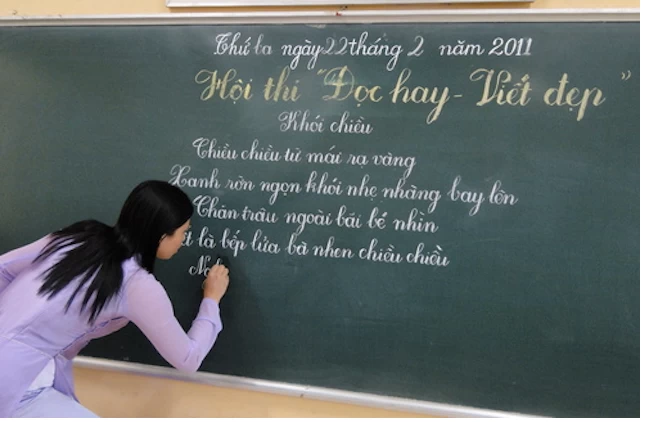 Thứ ba ngày 22 tháng 2 năm 2011
Hội thi "Đọc hay - Viết đẹp"
Khói chiều
Chiều chiều từ mái rạ vàng
Xanh rờn ngọn khói nhẹ nhàng bay lên
Chăn trâu ngoài bãi bé nhìn
là bếp lửa bà nhen chiều chiều